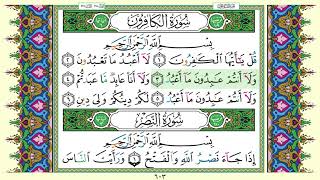 سُورَةُ الكَافِرُونَ
بِسْمِ ٱللَّهِ ٱلرَّحْمَٰنِ ٱلرَّحِيمِ
قُلْ يَٰٓأَيُّهَا ٱلْكَٰفِرُونَ ١ لَآ أَعْبُدُ مَا تَعْبُدُونَ ٢
وَلَآ أَنتُمْ عَٰبِدُونَ مَآ أَعْبُدُ ٣ وَلَآ أَنَا۠ عَابِدٌ مَّا عَبَدتُّمْ ٤
وَلَآ أَنتُمْ عَٰبِدُونَ مَآ أَعْبُدُ ٥ لَكُمْ دِينُكُمْ وَلِيَ دِينِ ٦
سُورَةُ النَّصْرِ
بِسْمِ ٱللَّهِ ٱلرَّحْمَٰنِ ٱلرَّحِيمِ
إِذَا جَآءَ نَصْرُ ٱللَّهِ وَٱلْفَتْحُ ١ وَرَأَيْتَ ٱلنَّاسَ
٦٠٣